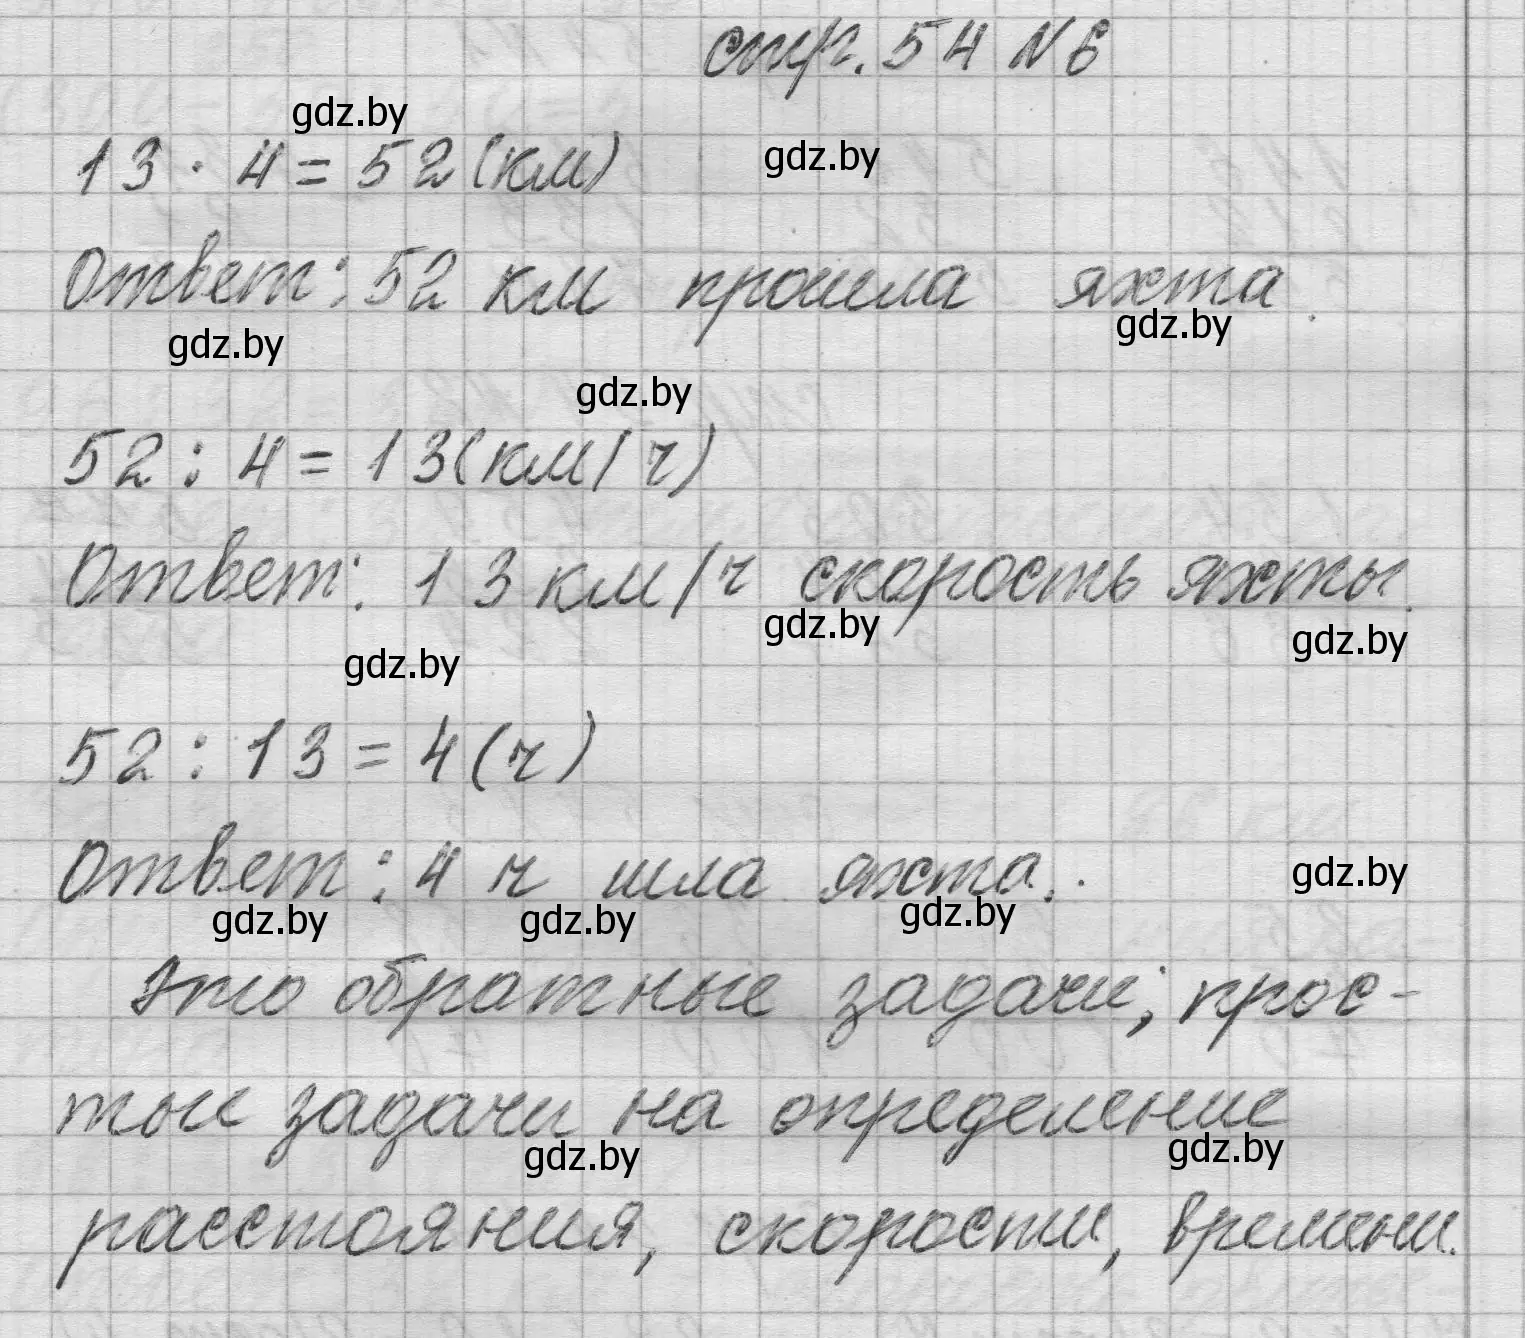 стр. 54 N 6
gdz.by
13 · 4 = 52 (км)
gdz.by
Ответ: 52 км прошла яхта.
gdz.by
gdz.by
gdz.by
52 : 4 = 13 (км/ч)
Ответ: 13 км/ч скорость яхты.
gdz.by
gdz.by
gdz.by
52 : 13 = 4 (ч)
Ответ: 4 ч шла яхта.
gdz.by
gdz.by
gdz.by
gdz.by
Это обратные задачи; прос-
тые задачи на определение
gdz.by
gdz.by
расстояния, скорости, времени.